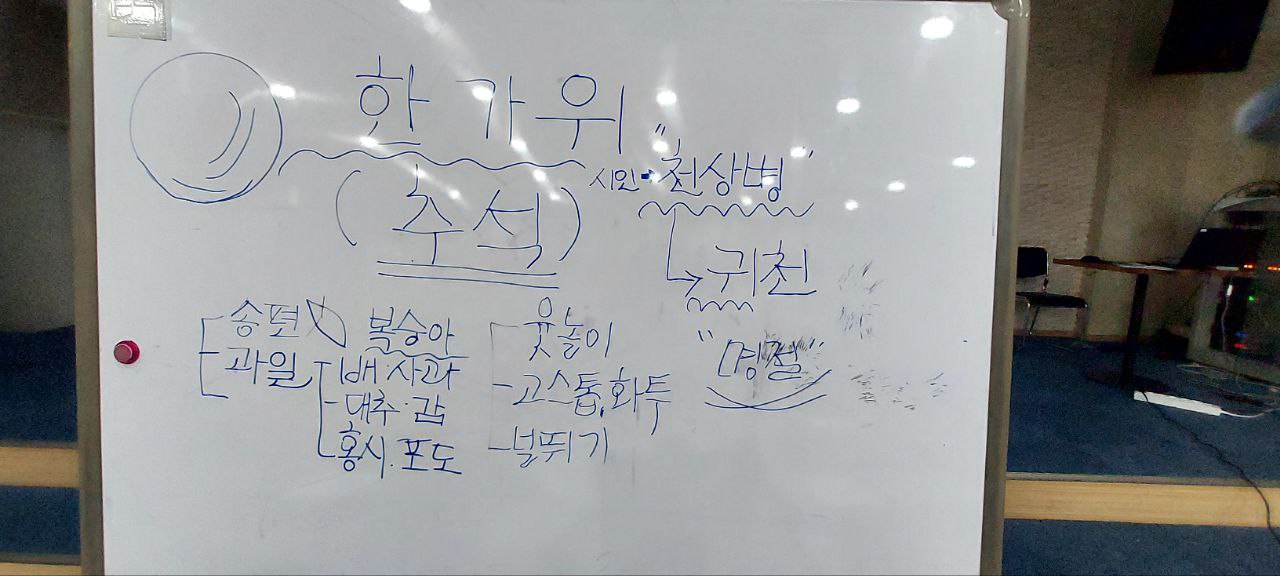 한가위
(추석)
시인·"천상병"
귀천
송편
과일
복숭아
배·사과
대추·감
홍시·포도
윷놀이
-고스톱, 화투
-널뛰기
"명절"